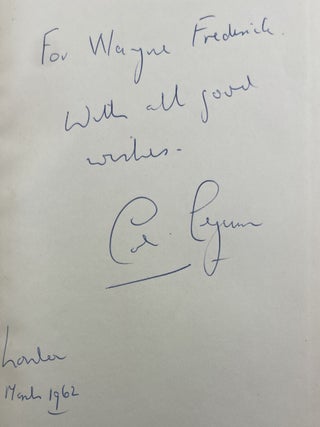 For Wayne Frederick.
With all good
wishes.
London
March 1962